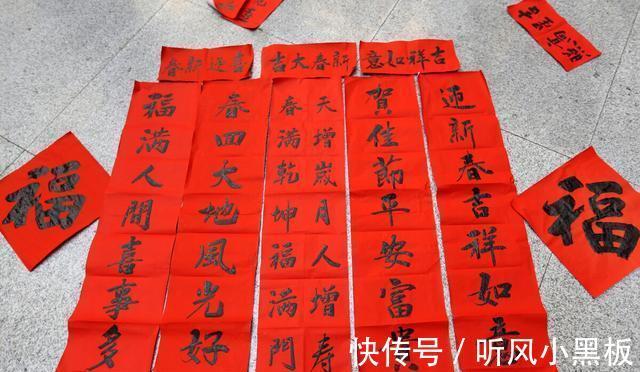 吉祥如意
新春大吉
喜迎新春
迎新春吉祥如意
賀佳節平安富贵
天增嵗月人增寿
春满乾坤福满門
春回大地風光好
福满人間喜事多
福
福
快传号/听风小黑板